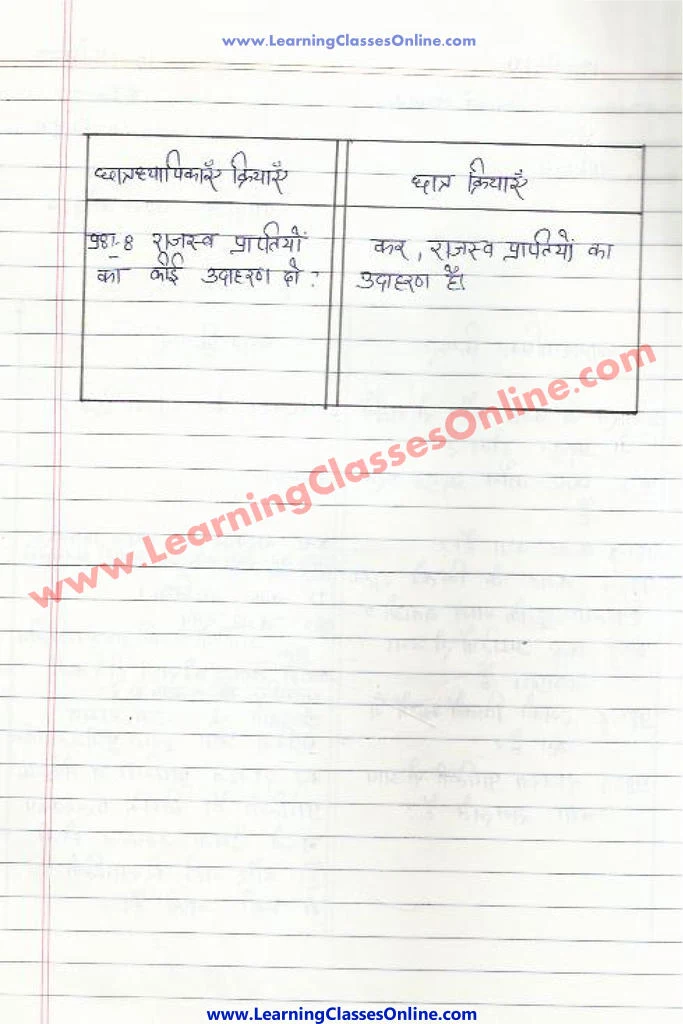 www.LearningClassesOnline.com
छात्रध्यापिकाएँ क्रियाएँ
छात्र क्रियाएँ
प्रश्न-8 राजस्व प्राप्तियों
का कोई उदाहरण दो ?
कर, राजस्व प्राप्तियों का
उदाहरण है।
www.LearningClassesOnline.com
www.LearningClassesOnline.com